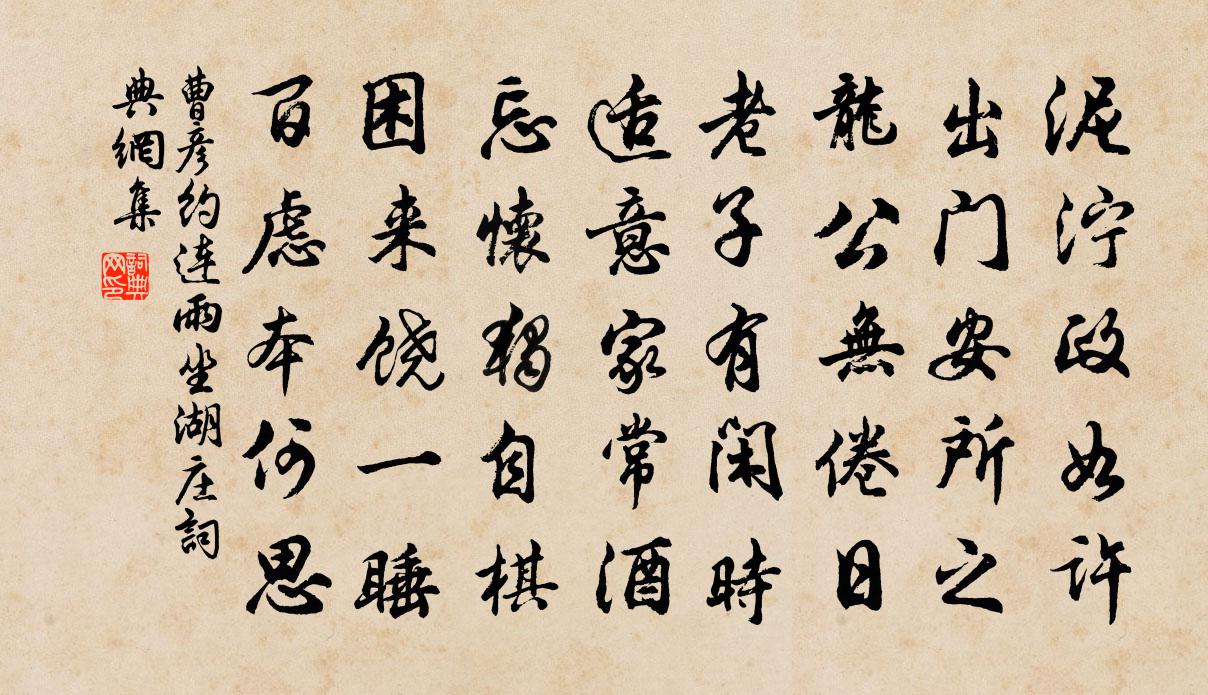 泥泞政如许
出门安所之
龍公無倦日
老子有闲時
适意家常酒
忘懷獨自棋
困来饶一睡
百慮本何思
曹彦约连雨坐湖庄詞
典網集
詞典網印